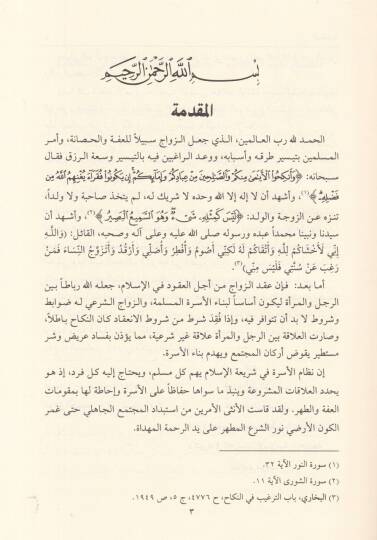 بسم الله الرحمن الرحيم
المقدمة
الحمد لله رب العالمين، الذي جعل الزواج سبيلاً للعفة والحصانة، وأمر
المسلمين بتيسير طرقه وأسبابه، ووعد الراغبين فيه بالتيسير وسعة الرزق فقال
سبحانه: ﴿وَأَنكِحُوا الْأَيَامَىٰ مِنكُمْ وَالصَّالِحِينَ مِنْ عِبَادِكُمْ وَإِمَائِكُمْ إِن يَكُونُوا فُقَرَاءَ يُغْنِهِمُ اللَّهُ مِن
فَضْلِهِ﴾(١)، وأشهد أن لا إله إلا الله وحده لا شريك له، لم يتخذ صاحبة ولا ولداً،
تنزه عن الزوجة والولد: ﴿لَيْسَ كَمِثْلِهِ شَيْءٌ وَهُوَ السَّمِيعُ الْبَصِيرُ﴾(٢)، وأشهد أن
سيدنا ونبينا محمداً عبده ورسوله صلى الله عليه وعلى آله وصحبه، القائل: (وَاللَّهِ
إِنِّي لَأَخْشَاكُمْ لِلَّهِ وَأَتْقَاكُمْ لَهُ لَكِنِّي أَصُومُ وَأُفْطِرُ وَأُصَلِّي وَأَرْقُدُ وَأَتَزَوَّجُ النِّسَاءَ فَمَنْ
رَغِبَ عَنْ سُنَّتِي فَلَيْسَ مِنِّي)(٣).
أما بعد: فإن عقد الزواج من أجل العقود في الإسلام، جعله الله رباطاً بين
الرجل والمرأة ليكون أساساً لبناء الأسرة المسلمة، والزواج الشرعي له ضوابط
وشروط لا بد أن تتوافر فيه، وإذا فُقِدَ شرط من شروط الانعقاد كان النكاح باطلاً،
وصارت العلاقة بين الرجل والمرأة علاقة غير شرعية، مما يؤذن بفساد عريض وشر
مستطير يقوض أركان المجتمع ويهدم بناء الأسرة.
إن نظام الأسرة في شريعة الإسلام يهم كل مسلم، ويحتاج إليه كل فرد، إذ هو
يحدد العلاقات المشروعة وينبذ ما سواها حفاظاً على الأسرة وإحاطة لها بمقومات
العفة والطهر. ولقد قاست الأنثى الأمرين من استبداد المجتمع الجاهلي حتى غمر
الكون الأرضي نور الشرع المطهر على يد الرحمة المهداة.
(١) سورة النور الآية ٣٢.
(٢) سورة الشورى الآية ١١.
(٣) البخاري، باب الترغيب في النكاح، ح ٤٧٧٦، ج ٥، ص ١٩٤٩.
٣